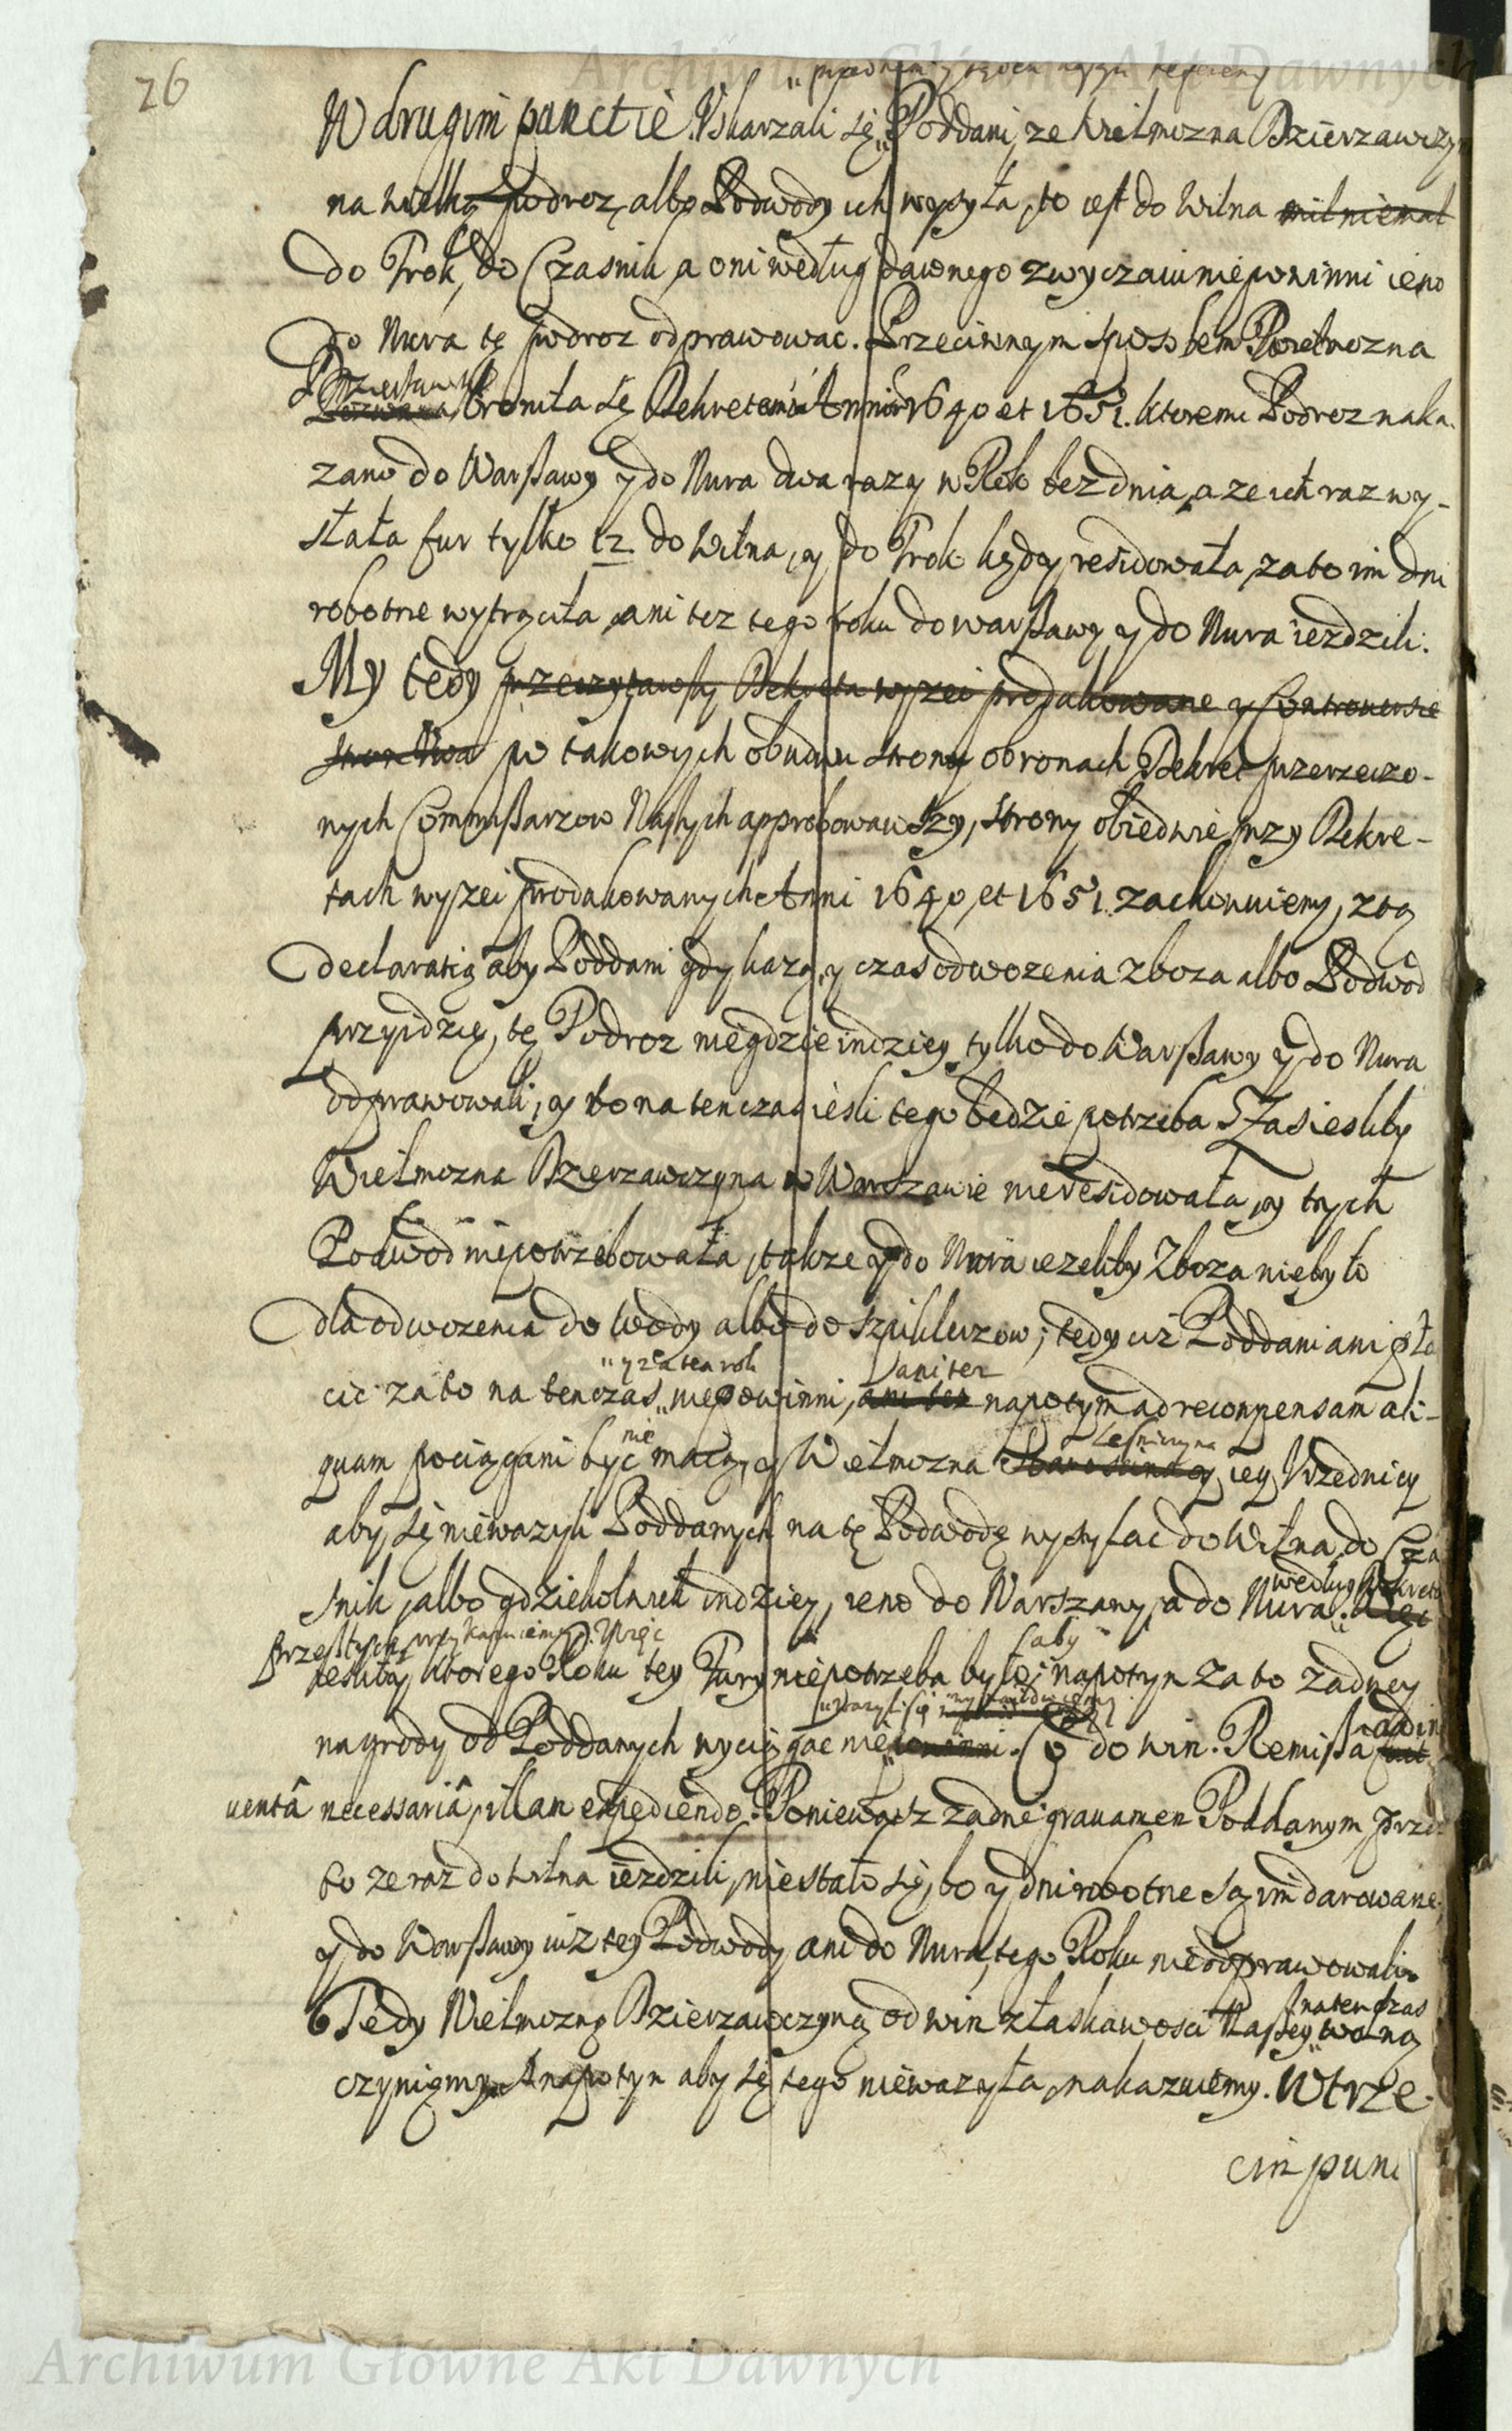 26
W drugim punctie Uskarzali się Poddani, ze Wielmozna Dzierzawczy
na wielką podroz, albo Podwody ich wysyła, to iest do Wilna
do Trok, do Czasnik, a oni według dawnego zwyczaiu niepowinni ieno
do Nura tę podroz odprawowac. Przeciwnym sposobem Wielmozna
broniła się Dekretami Annor 1640 et 1651. ktoremi Podroz naka-
zano do Warßawy y do Nura dwa razy w Rok bez dnia, a ze ich raz wy-
słała fur tylko 12 do Wilna, y do Trok kędy residowała, zato im dni
robotne wytrąciła, ani tez tego roku do Warßawy y do Nura iezdzili.
My tedy przeczytawszy Dekreta wyzei produkowane y Controwersie
po takowych obudwu strony obronach Dekret przerzeczo-
nych Commißarzow Naszych approbowawszy, strony obiedwie przy Dekre-
tach wyzei produkowanych Anni 1640, et 1651. zachowuiemy, z tą
declaratią aby Poddani gdy każą, y czas odwozenia zboza albo Podwod
przyidzie, tę Podroz niegdzieindziey tylko do Warßawy y do Nura
odprawowali, y to na tenczas iesli tego będzie potrzeba. Zas iesliby
Wielmozna Dzierzawczyna w Warszawie nieresidowała, y tych
Podwod niepotrzebowała, takze y do Nura iezeliby Zboza niebyło
dla odwozenia do wody albo do szpiklerzow; tedy iuz Poddani ani pła
y za ten rok ani tez
cic za to na tenczas niepowinni, ani tez napotym ad recompensam ali-
nie Lesniczyna
quam pociągani być maią, y Wielmozna y iey Urzednicy
aby się niewazyli Poddanych na tę Podwodę wysyłac do Wilna, do Cza
według Dekretu
snik, albo gdziekolwiek indziey, ieno do Warszawy, a do Nura. Więc
przestrzegą przykazuiemy. Więc aby
iesliby ktorego Roku tey Fury niepotrzeba było; napotym za to zadney
wazyli się
nagrody od Poddanych wyciągac niepowinni. Co do win. Remißa
uentâ necessariâ, illam expediendo. Poniewasz zadne grauamen Poddanym przez
to ze raz do Wilna iezdzili, niestało się, bo y dni robotne są im darowane,
y do Warßawy iuz tey Podwody, ani do Nura, tego Roku nieodprawowali.
natenczas
Tedy Wielmozną Dzierzawczyną od win z łaskawosci Naßey wolną
czyniemy. A napotym aby się tego niewazyła, nakazuiemy. W trze-
cim punc
Archiwum Główne Akt Dawnych